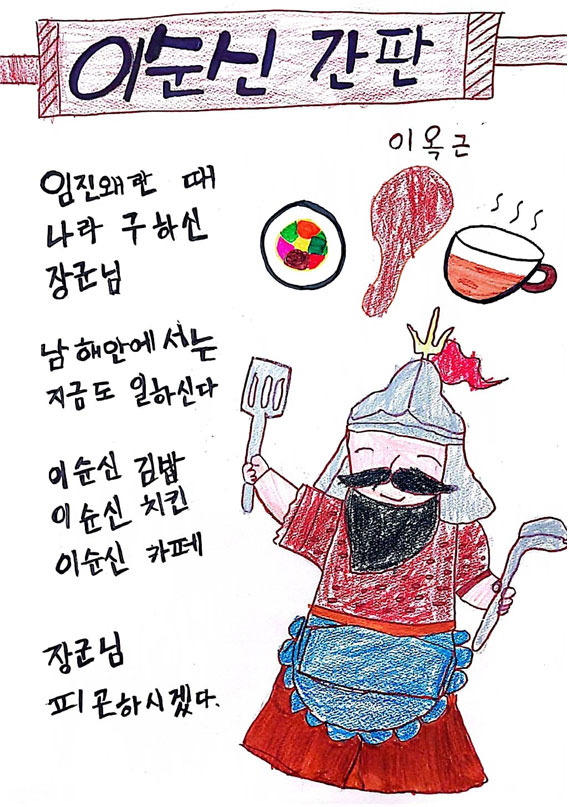 이순신 간판
이옥근
임진왜란 때
나라 구하신
장군님
남해안에서는
지금도 일하신다
이순신 김밥
이순신 치킨
이순신 카페
장군님
피곤하시겠다.